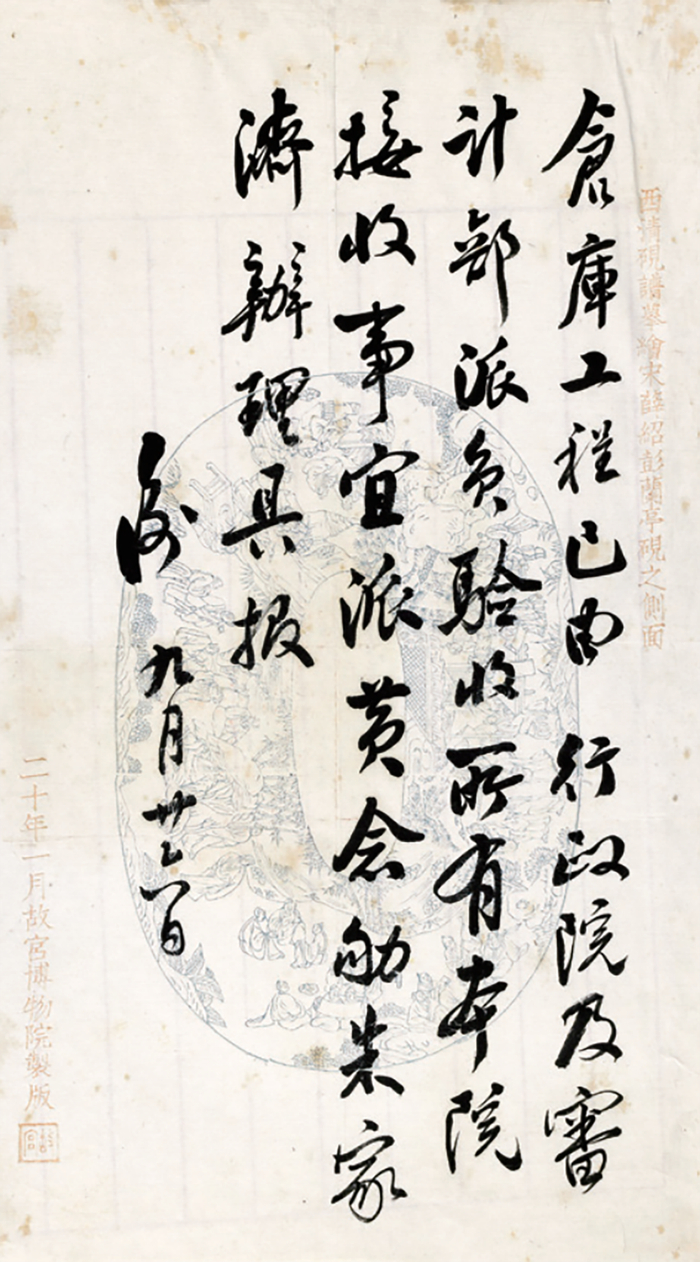 西清硯譜摹繪宋薛紹彭蘭亭硯之側面
倉庫工程已由 行政院及審
計部派員驗收所有本院
接收事宜派黃念劬朱家
濟辦理具報
衡 九月廿六日
二十年一月故宮博物院製版